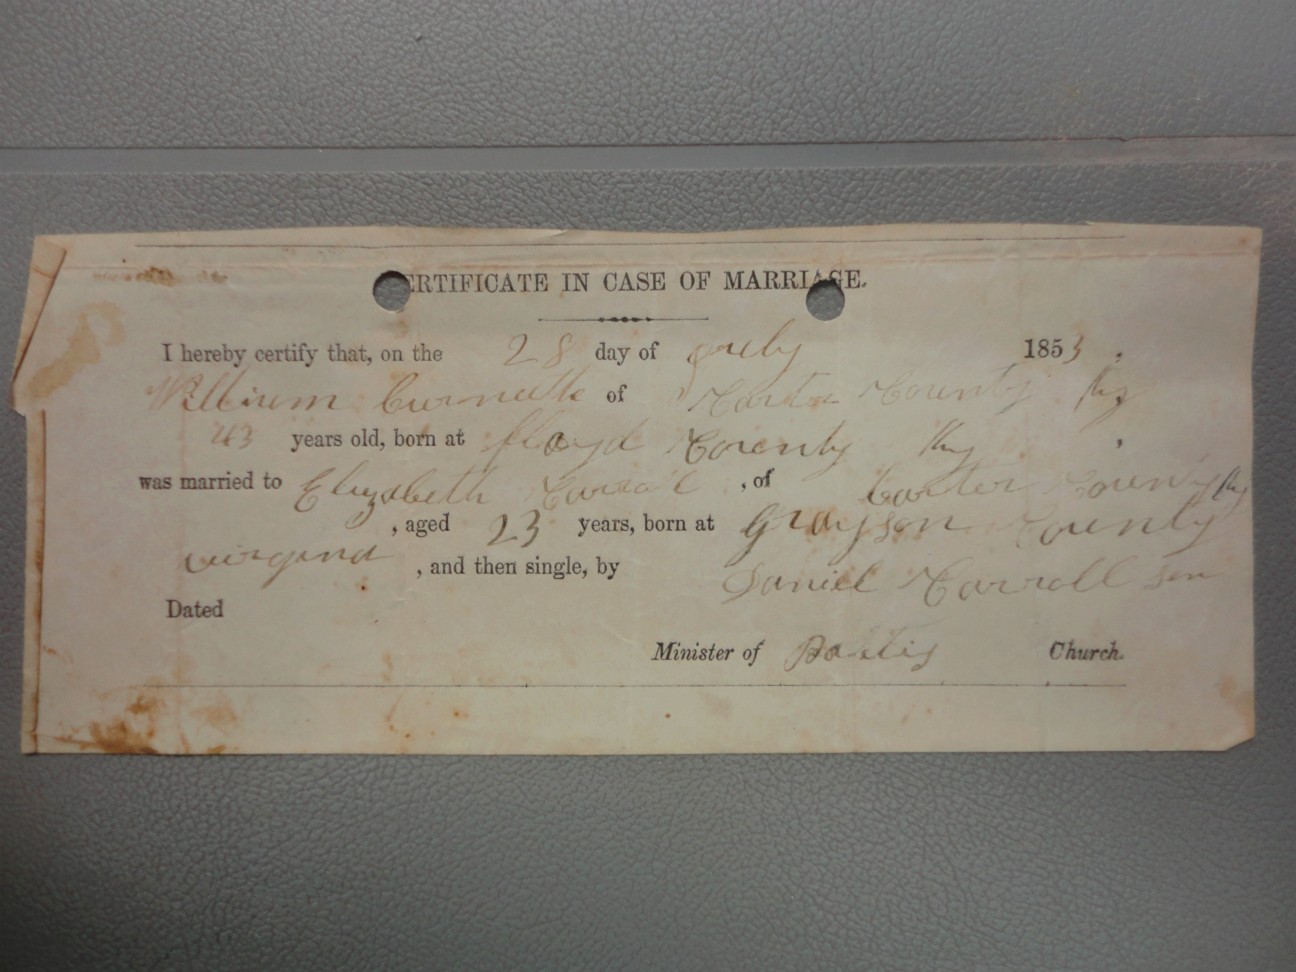 ERTIFICATE IN CASE OF MARRIAGE.
I hereby certify that, on the 28 day of July 1853.
William Burnett of Carter County Ky
43 years old, born at floyd County Ky,
was married to Elizabeth Carrol, of Carter County Ky
, aged 23 years, born at Grayson County
virgina, and then single, by Daniel Carroll sen
Dated
Minister of Baptis Church.